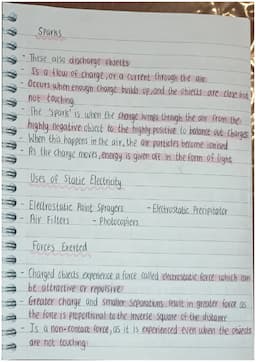 Sparks
- These also discharge objects
- Is a flow of charge, or a current through the air.
- Occurs when enough charge builds up, and the objects are close but
not touching
- The 'spark' is when the charge jumps through the air from the
highly negative object to the highly positive to balance out charges
- When this happens in the air, the air particles become ionised
- As the charge moves, energy is given off in the form of light
Uses of Static Electricity
- Electrostatic Paint Sprayers - Electrostatic Precipitator
- Air Filters - Photocopiers
Forces Exerted
- Charged objects experience a force called electrostatic force which can
be attractive or repulsive
- Greater charge and smaller separations result in greater force as
the force is proportional to the inverse square of the distance
- Is a non-contact force, as it is experienced even when the objects
are not touching